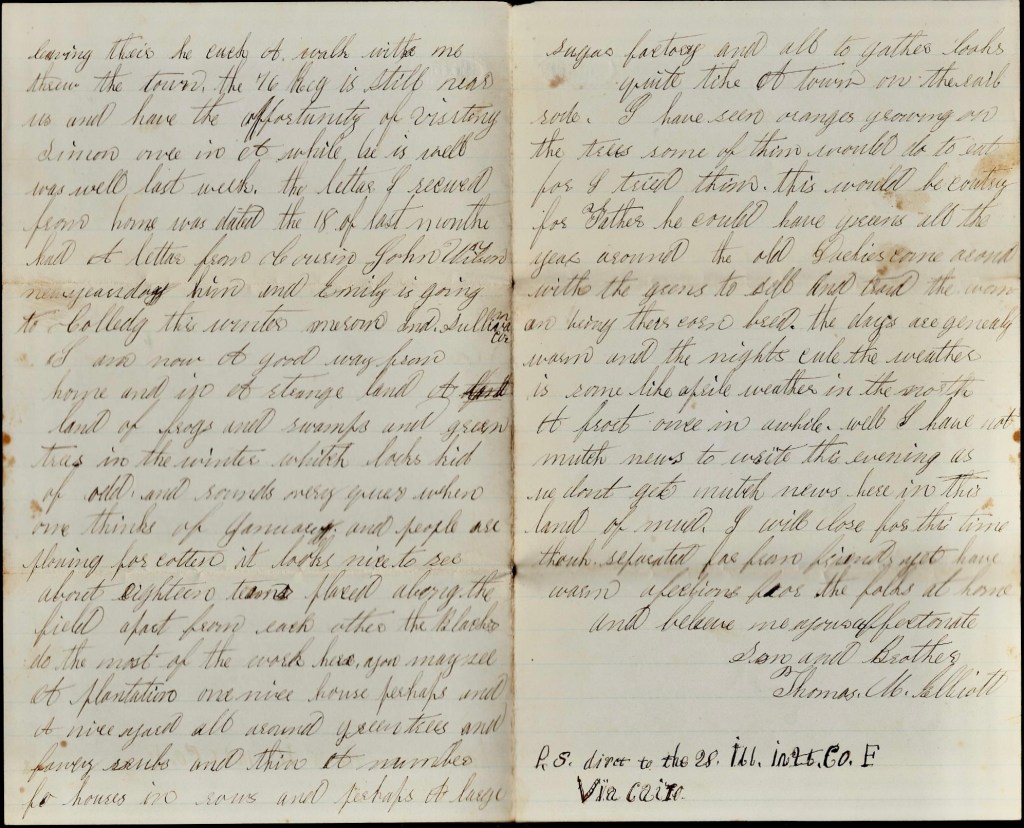 leaving their he cuch A walk with me
threw the town. the 76 Reg is still near
us and have the opportunity of visitong
Simon once in A while he is well
was well last week. the letter I receved
from home was dated the 18 of last month
had A letter from Cousin John Wilson
newyearsday him and Emily is going
to Colledg this winter merom Ind. Sullivan Co
I am now A good way from
home and in A strange land A
land of frogs and swamps and green
treas in the winter whitch looks kid
of odd. and sounds very quear when
one thinks of January and people are
plowing for cotten it looks nice to see
about eighteen teams placed along the
field apart from each other the Blacks
do the most of the work here, you may see
A plantation one nice house perhaps and
A nice yard all around green trees and
fancy srubs and thin A number
fo houses in rows and perhaps A large
sugar factory and all to gather looks
quite like A town on the rail
rode. I have seen oranges growing on
the trees some of thim would do to eat
for I tried thim. this would be contry
for Father he could have greens all the
year around the old come around
with the greens to sell And trad the wom
an being there corn bred. the days are genealy
warm and the nights cule the weather
is some like aprile weather in the north
A frost once in awhile. well I have not
mutch news to write this evening as
we dont get mutch news here in this
land of mud. I will close for this time
though seperated far from friends yet have
warm afections for the folks at home
and beleive me your affectonate
Son and Brother
Thomas. M. Elliott
P. S. dirct to the 28. Ill. inft. Co. E
Via Cairo